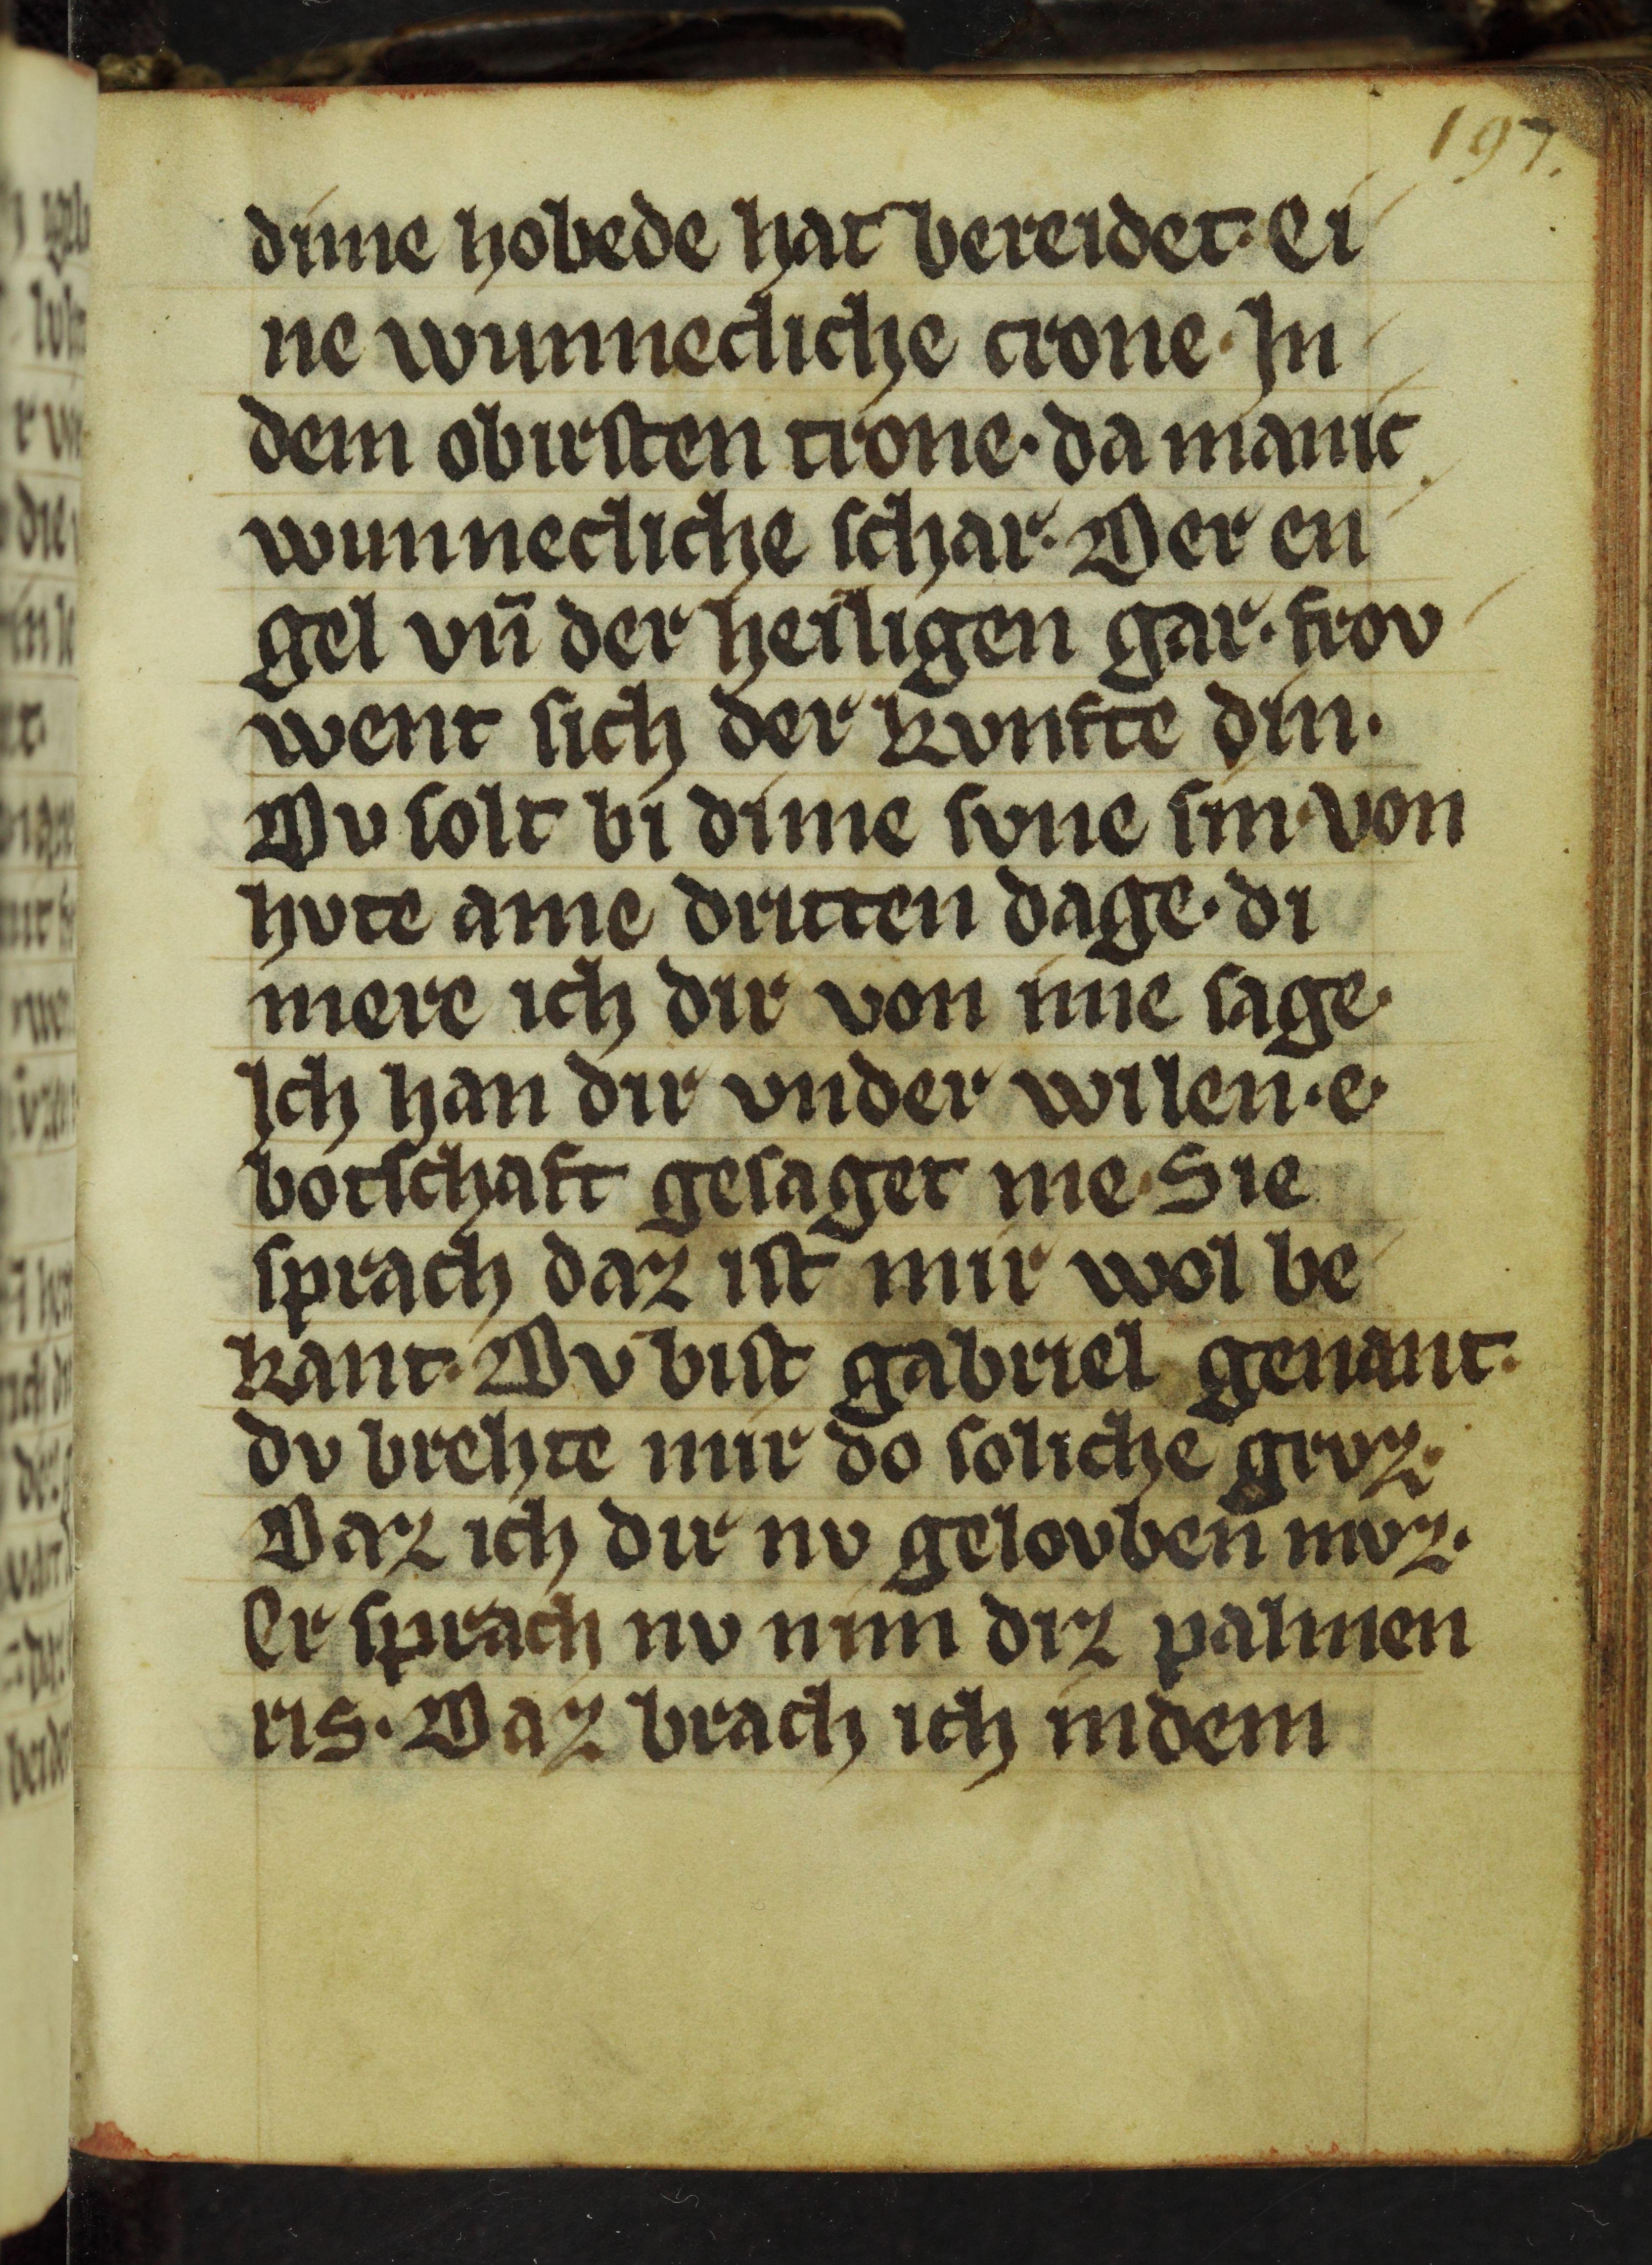 197.
dime hobede hat bereidet· Ei
ne wunnecliche crone· In
dem obirsten trone· da manic
wunnecliche schar· Der en
gel vn̄ der heiligen gar· frov
went sich der kvnfte din·
Dv solt bi dime svne sin· von
hvte ame dritten dage· di
mere ich dir von ime sage·
Ich han dir vnder wilen· e·
botschaft gesaget me· Sie
sprach daz ist mir wol be
kant· Dv bist gabriel genant·
dv brehte mir do soliche grvz·
Daz ich dir nv gelovben mvz·
Er sprach nv nim diz palmen
ris· Daz brach ich indem